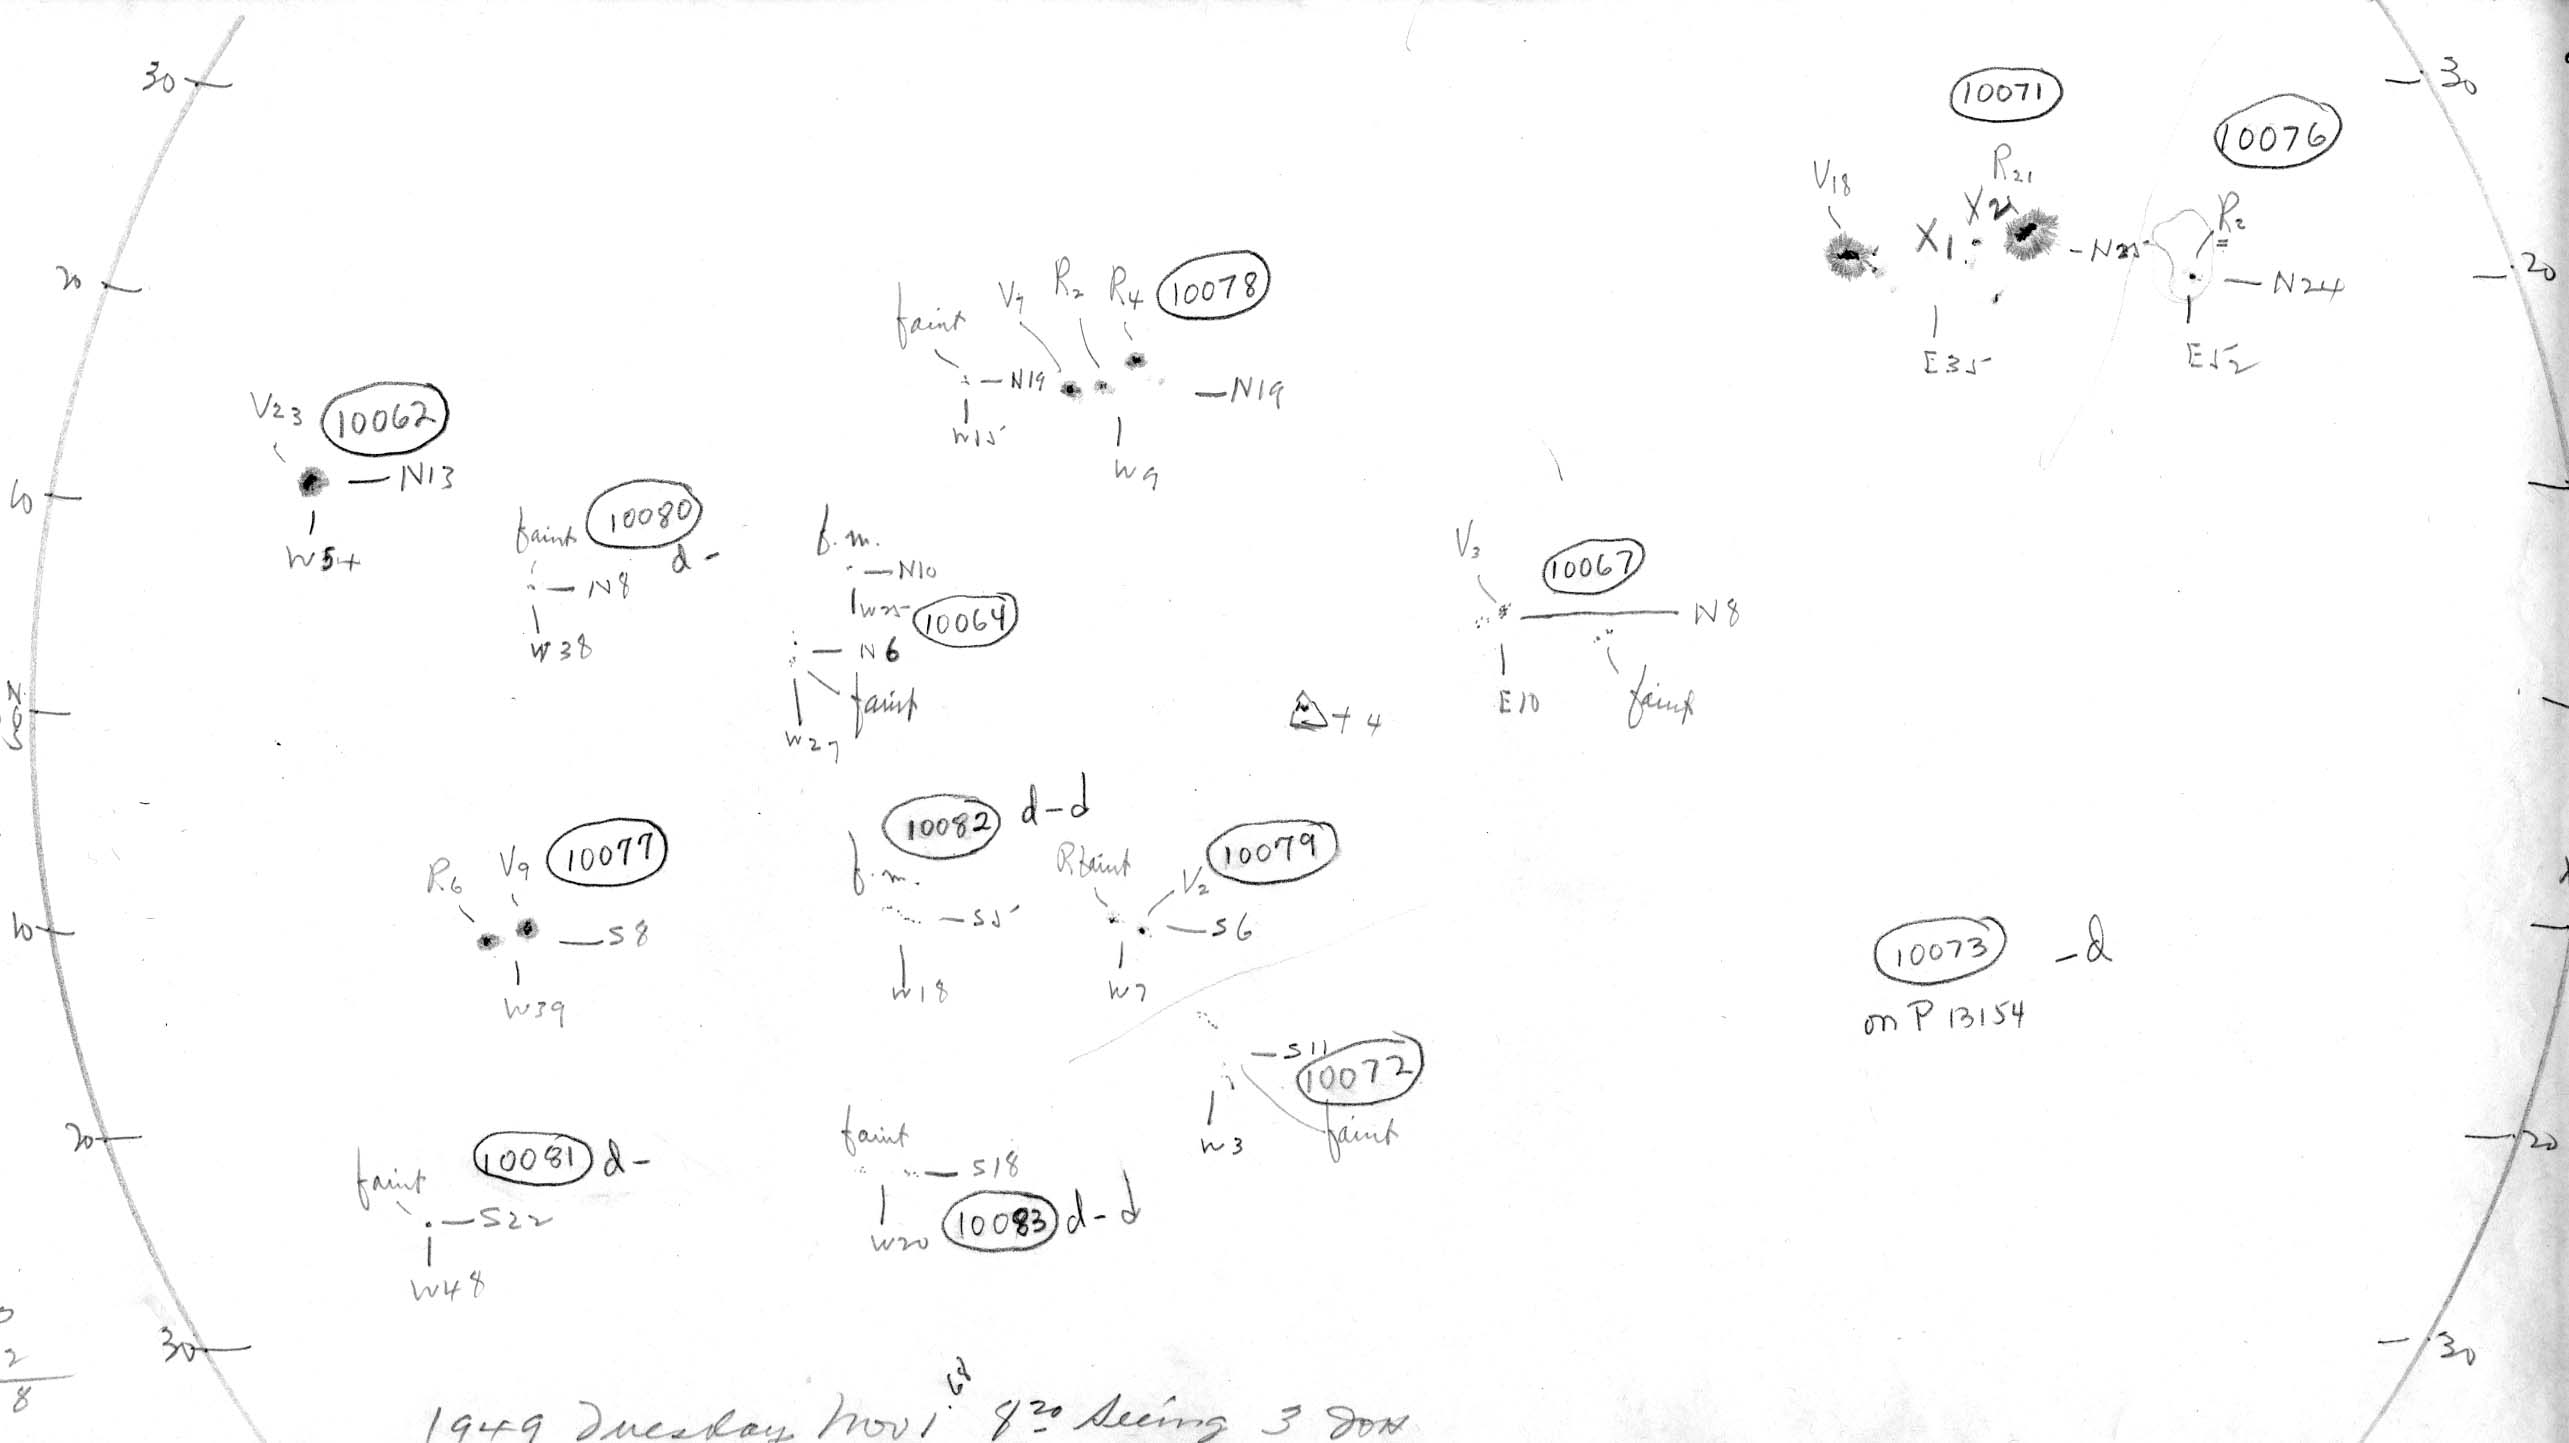 30
30
10071
10076
V18
R21
X2
X1
N25
R2
20
20
N24
E35
E52
faint
V7
R2
R4
10078
N19
N19
W15
W9
V23
10062
N13
10
W54
faint
10080
d -
N8
W38
f.m.
N10
W25
10064
N6
faint
W27
V3
10067
N8
E10
faint
N
0
S
+ 4
10082 d-d
f.m.
S5
W18
R6
V9
10077
S8
10
W39
R faint
V2
10079
S6
W7
10073 -d
on P 13154
S11
10072
faint
W3
20
20
faint
10081 d-
S22
W48
faint
S18
W20
10083 d-d
30
30
2
8
1949 Tuesday Nov 1.68 8 20 Seeing 3